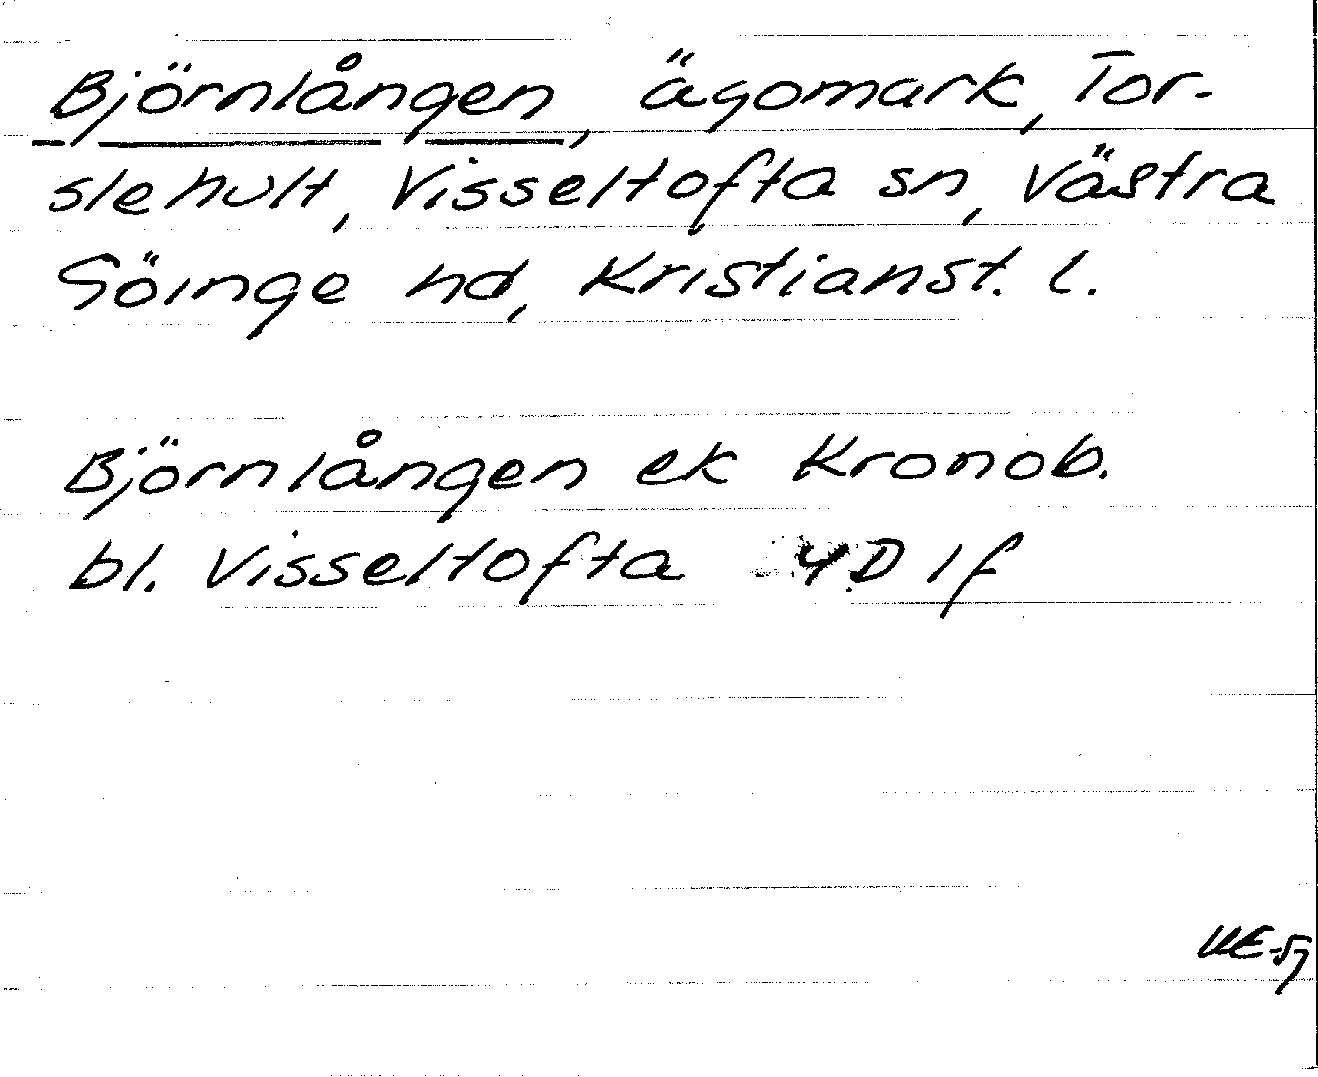 Björnlången, ägomark, Tor-
slehult, Visseltofta sn, Västra
Göinge hd, Kristianst. l.
Björnlången ek Kronob.
bl. Visseltofta 4D 1f